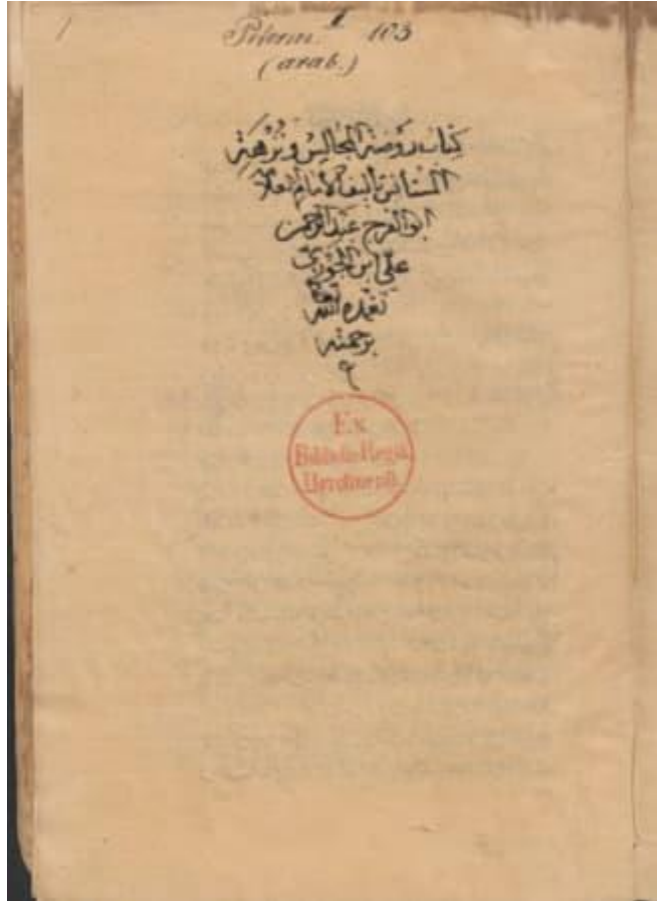 1
Peterm. I 103
(arab.)
كتاب روضة المجالس ونزهة
المستأنس تأليف الامام العلامة
ابو الفرج عبد الرحمن
علي ابن الجوزي
تغمده الله تعالى
برحمته
م
Ex
Biblioth. Regia
Berolinensi.